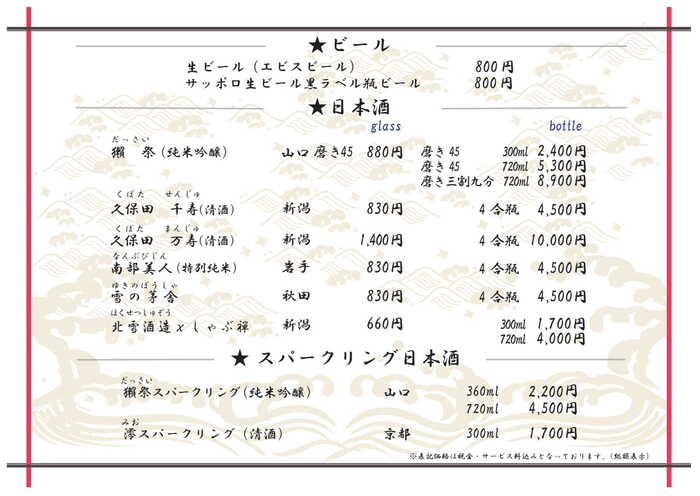 ★ビール
生ビール（エビスビール） 800円
サッポロ生ビール黒ラベル瓶ビール 800円
★日本酒
glass bottle
だっさい
獺 祭(純米吟醸) 山口 磨き45 880円 磨き45 300ml 2,400円
磨き45 720ml 5,300円
磨き三割九分 720ml 8,900円
くぼた せんじゅ
久保田 千寿(清酒) 新潟 830円 4合瓶 4,500円
くぼた まんじゅ
久保田 万寿(清酒) 新潟 1,400円 4合瓶 10,000円
なんぶびじん
南部美人(特別純米) 岩手 830円 4合瓶 4,500円
ゆきのぼうしゃ
雪の茅舎 秋田 830円 4合瓶 4,500円
ほくせつしゅぞう
北雪酒造×しゃぶ禅 新潟 660円 300ml 1,700円
720ml 4,000円
★スパークリング日本酒
だっさい
獺祭スパークリング(純米吟醸) 山口 360ml 2,200円
720ml 4,500円
みお
澪スパークリング（清酒） 京都 300ml 1,700円
※表記価格は税金・サービス料込みとなっております。(総額表示)